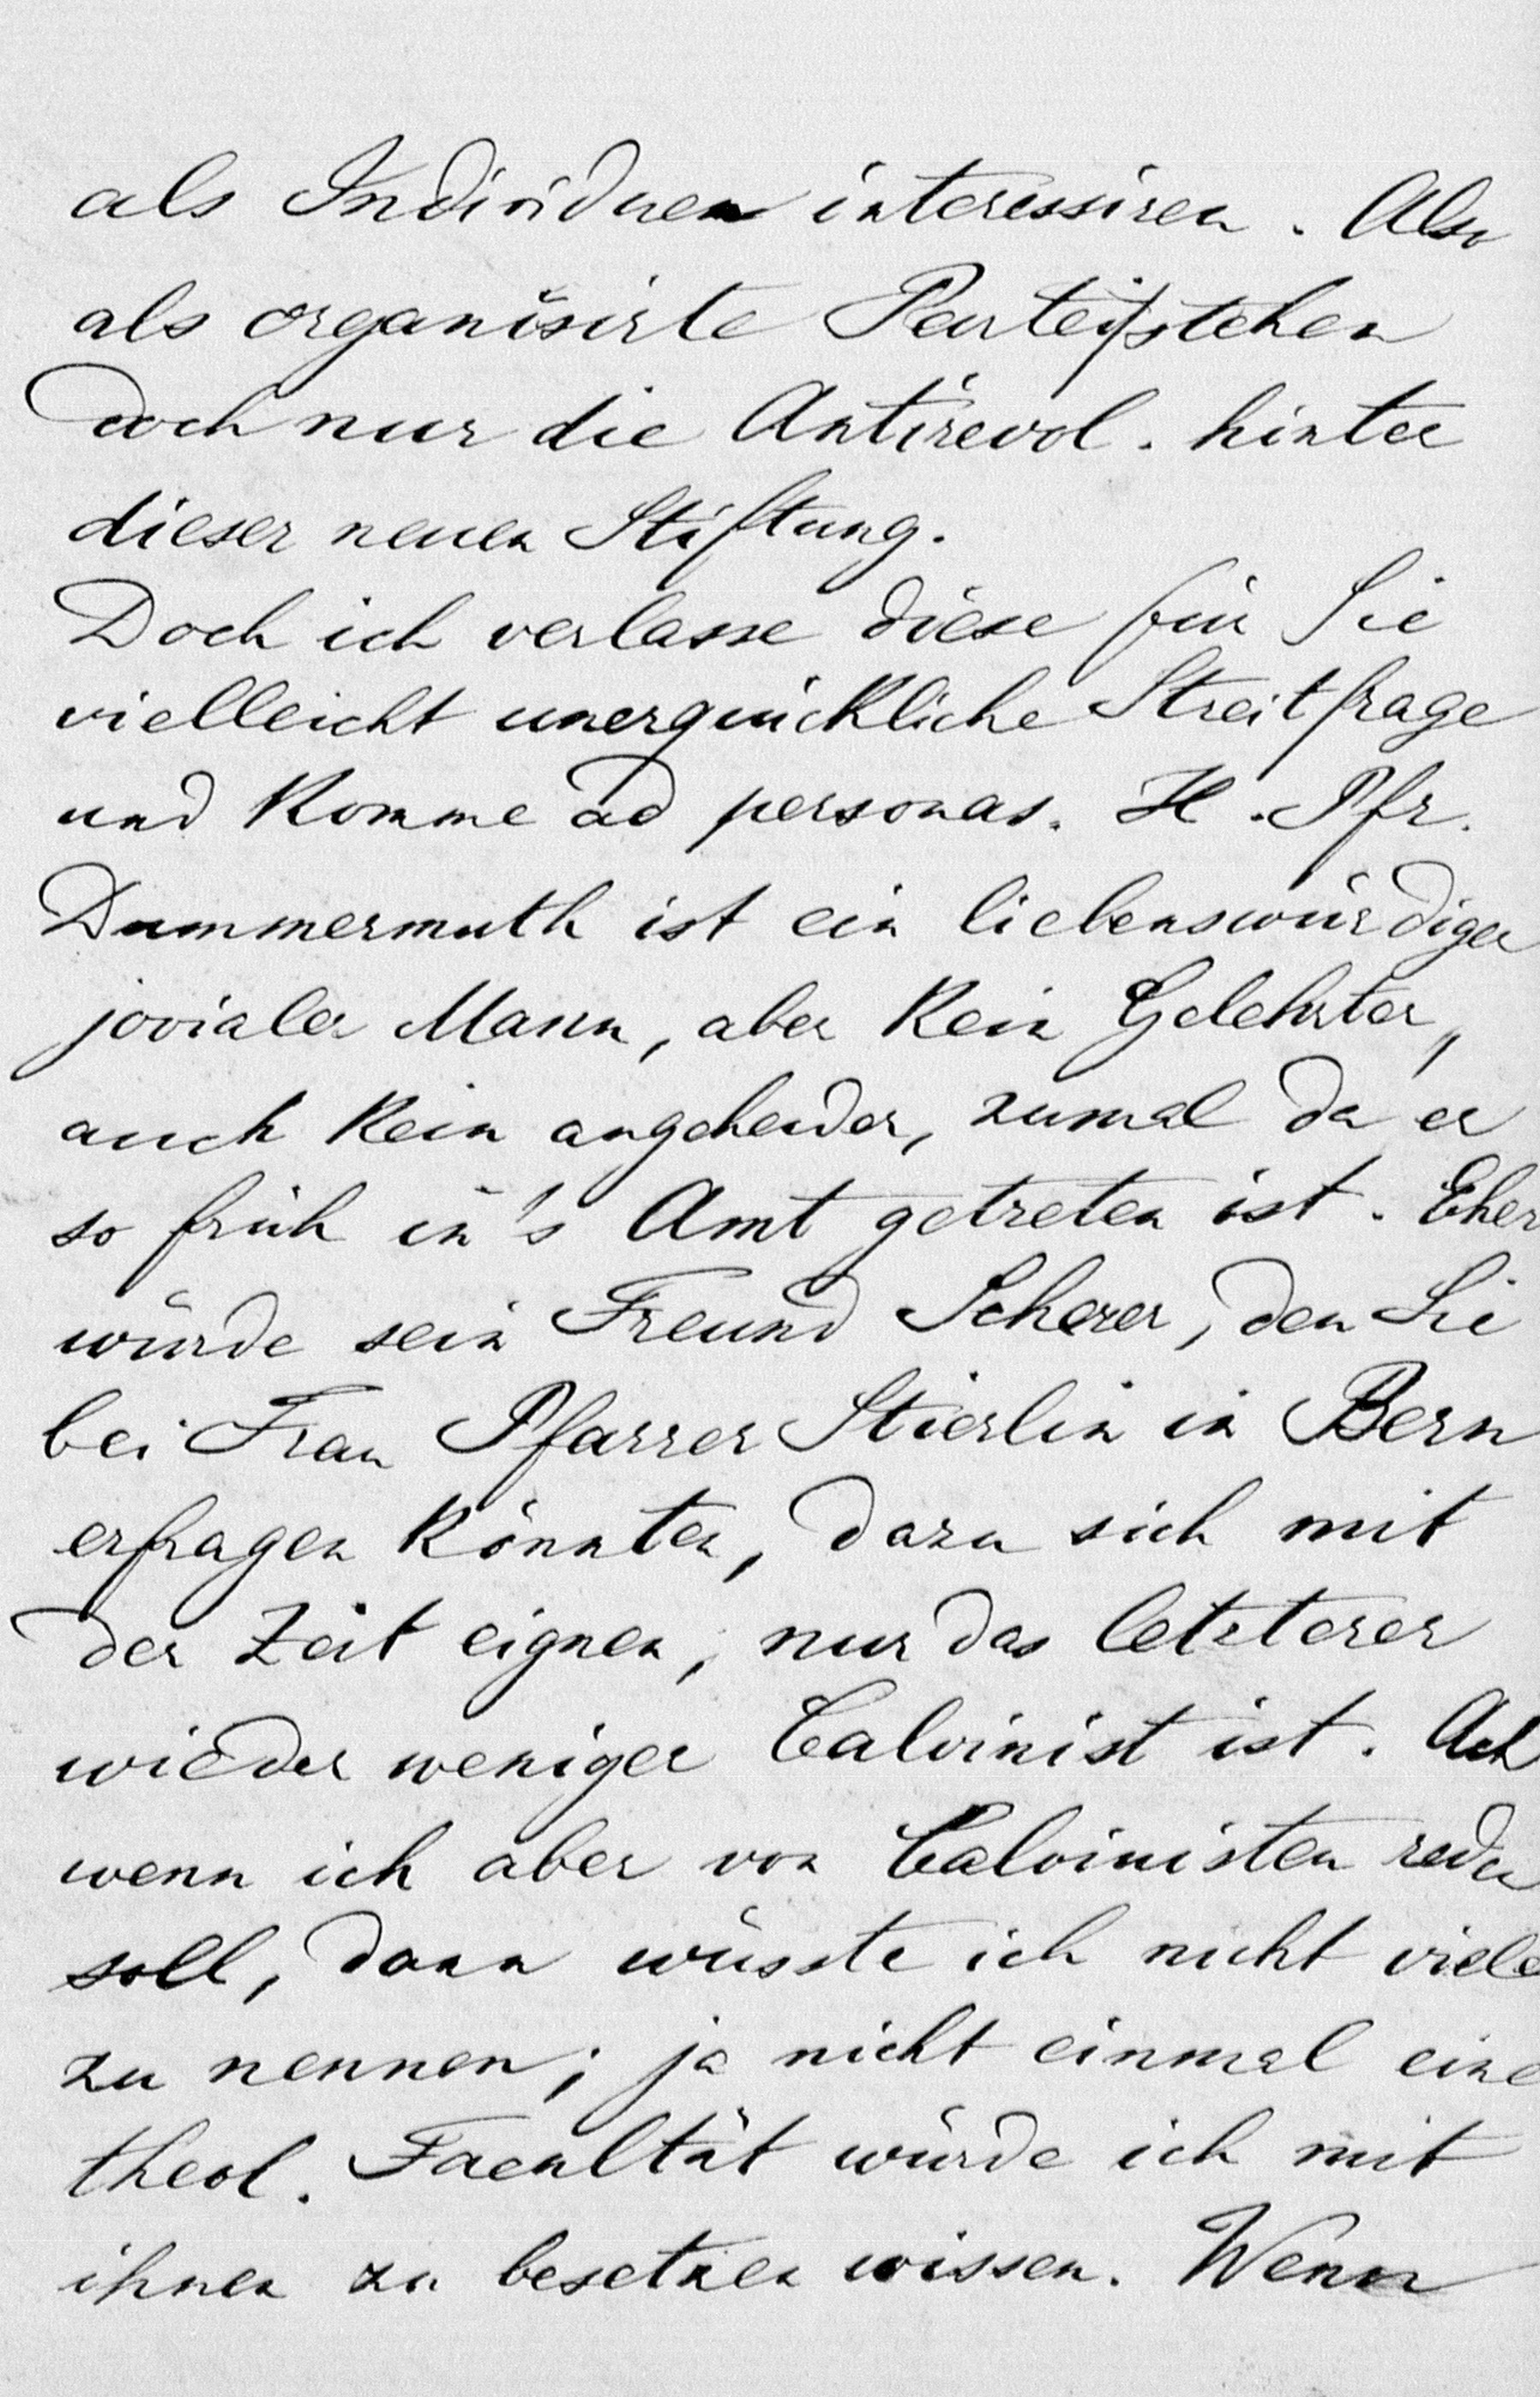 als Individuen interessiren. Also
als organisirte Partei stehen
doch nur die Antirevol. hinter
dieser neuen Stiftung.
Doch ich verlasse diese für Sie
vielleicht unerquickliche Streitfrage
und komme ad personas. H. Pfr.
Dummermuth ist ein liebenswürdiger
jovialer Mann, aber kein Gelehrter,
auch kein angehender, zumal da er
so früh in's Amt getreten ist. Eher
würde sein Freund Scherer, den Sie
bei Frau Pfarrer Stierlin in Bern
erfragen könnten, dazu sich mit
der Zeit eignen, nur das letzterer
wieder weniger Calvinist ist. Ach
wenn ich aber von Calvinisten reden
soll, dann wüsste ich nicht viele
zu nennen; ja nicht einmal eine
theol. Facultät würde ich mit
ihnen zu besetzen wissen. Wenn